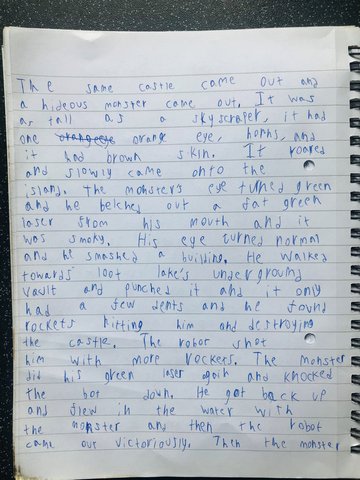 The same castle came out and
a hideous monster came out. It was
as tall as a skyscraper, it had
one orange eye, horns, and
it had brown skin. It roared
and slowly came onto the
island. The monster's eye turned green
and he belched out a fat green
laser from his mouth and it
was smoky. His eye turned normal
and he smashed a building. He walked
towards loot lake's underground
vault and punched it and it only
had a few dents and he found
rockets hitting him and destroying
the castle. The robot shot
him with more rockets. The monster
did his green laser again and knocked
the bot down. He got back up
and flew in the water with
the monster and then the robot
came out victoriously. Then the monster